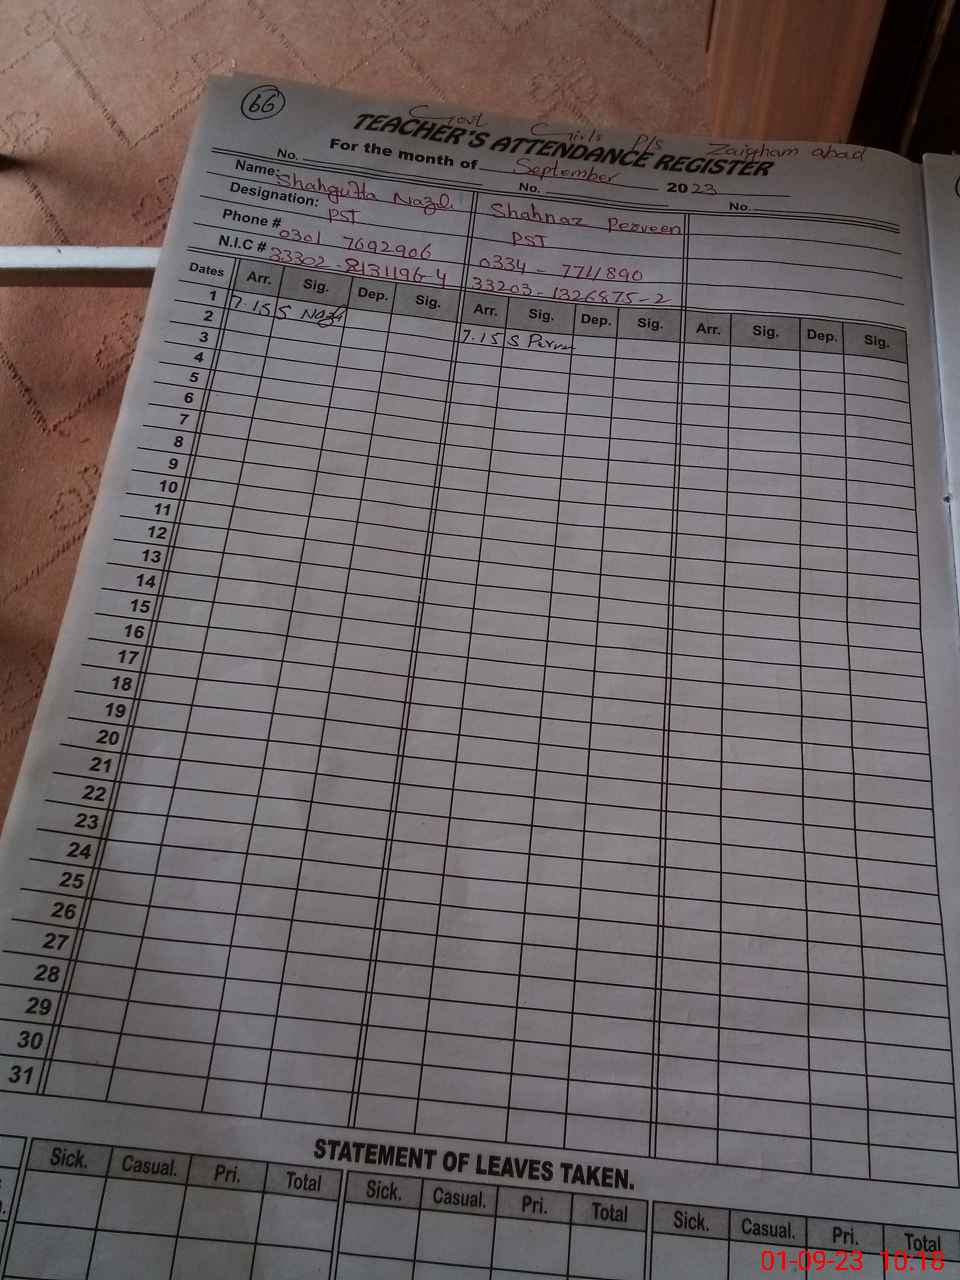 66
Govt Girls P/S Zaigham abad
TEACHER'S ATTENDANCE REGISTER
For the month of September 2023
No. No. No.
Name: Shahgutta Nazli Shahnaz Perveen
Designation: PST PST
Phone # 0301 7692906 0334 - 7711890
N.I.C # 33302 - 8131196-4 33203-1326875-2
Dates Arr. Sig. Dep. Sig. Arr. Sig. Dep. Sig. Arr. Sig. Dep. Sig.
1 7.15 S Nazli 7.15 S Perv
2
3
4
5
6
7
8
9
10
11
12
13
14
15
16
17
18
19
20
21
22
23
24
25
26
27
28
29
30
31
STATEMENT OF LEAVES TAKEN.
Sick. Casual. Pri. Total Sick. Casual. Pri. Total Sick. Casual. Pri. Total
01-09-23 10:18